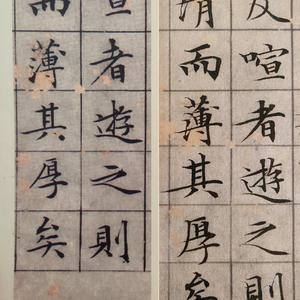 喧者遊之則
而薄其厚矣
喧者遊之則
而薄其厚矣